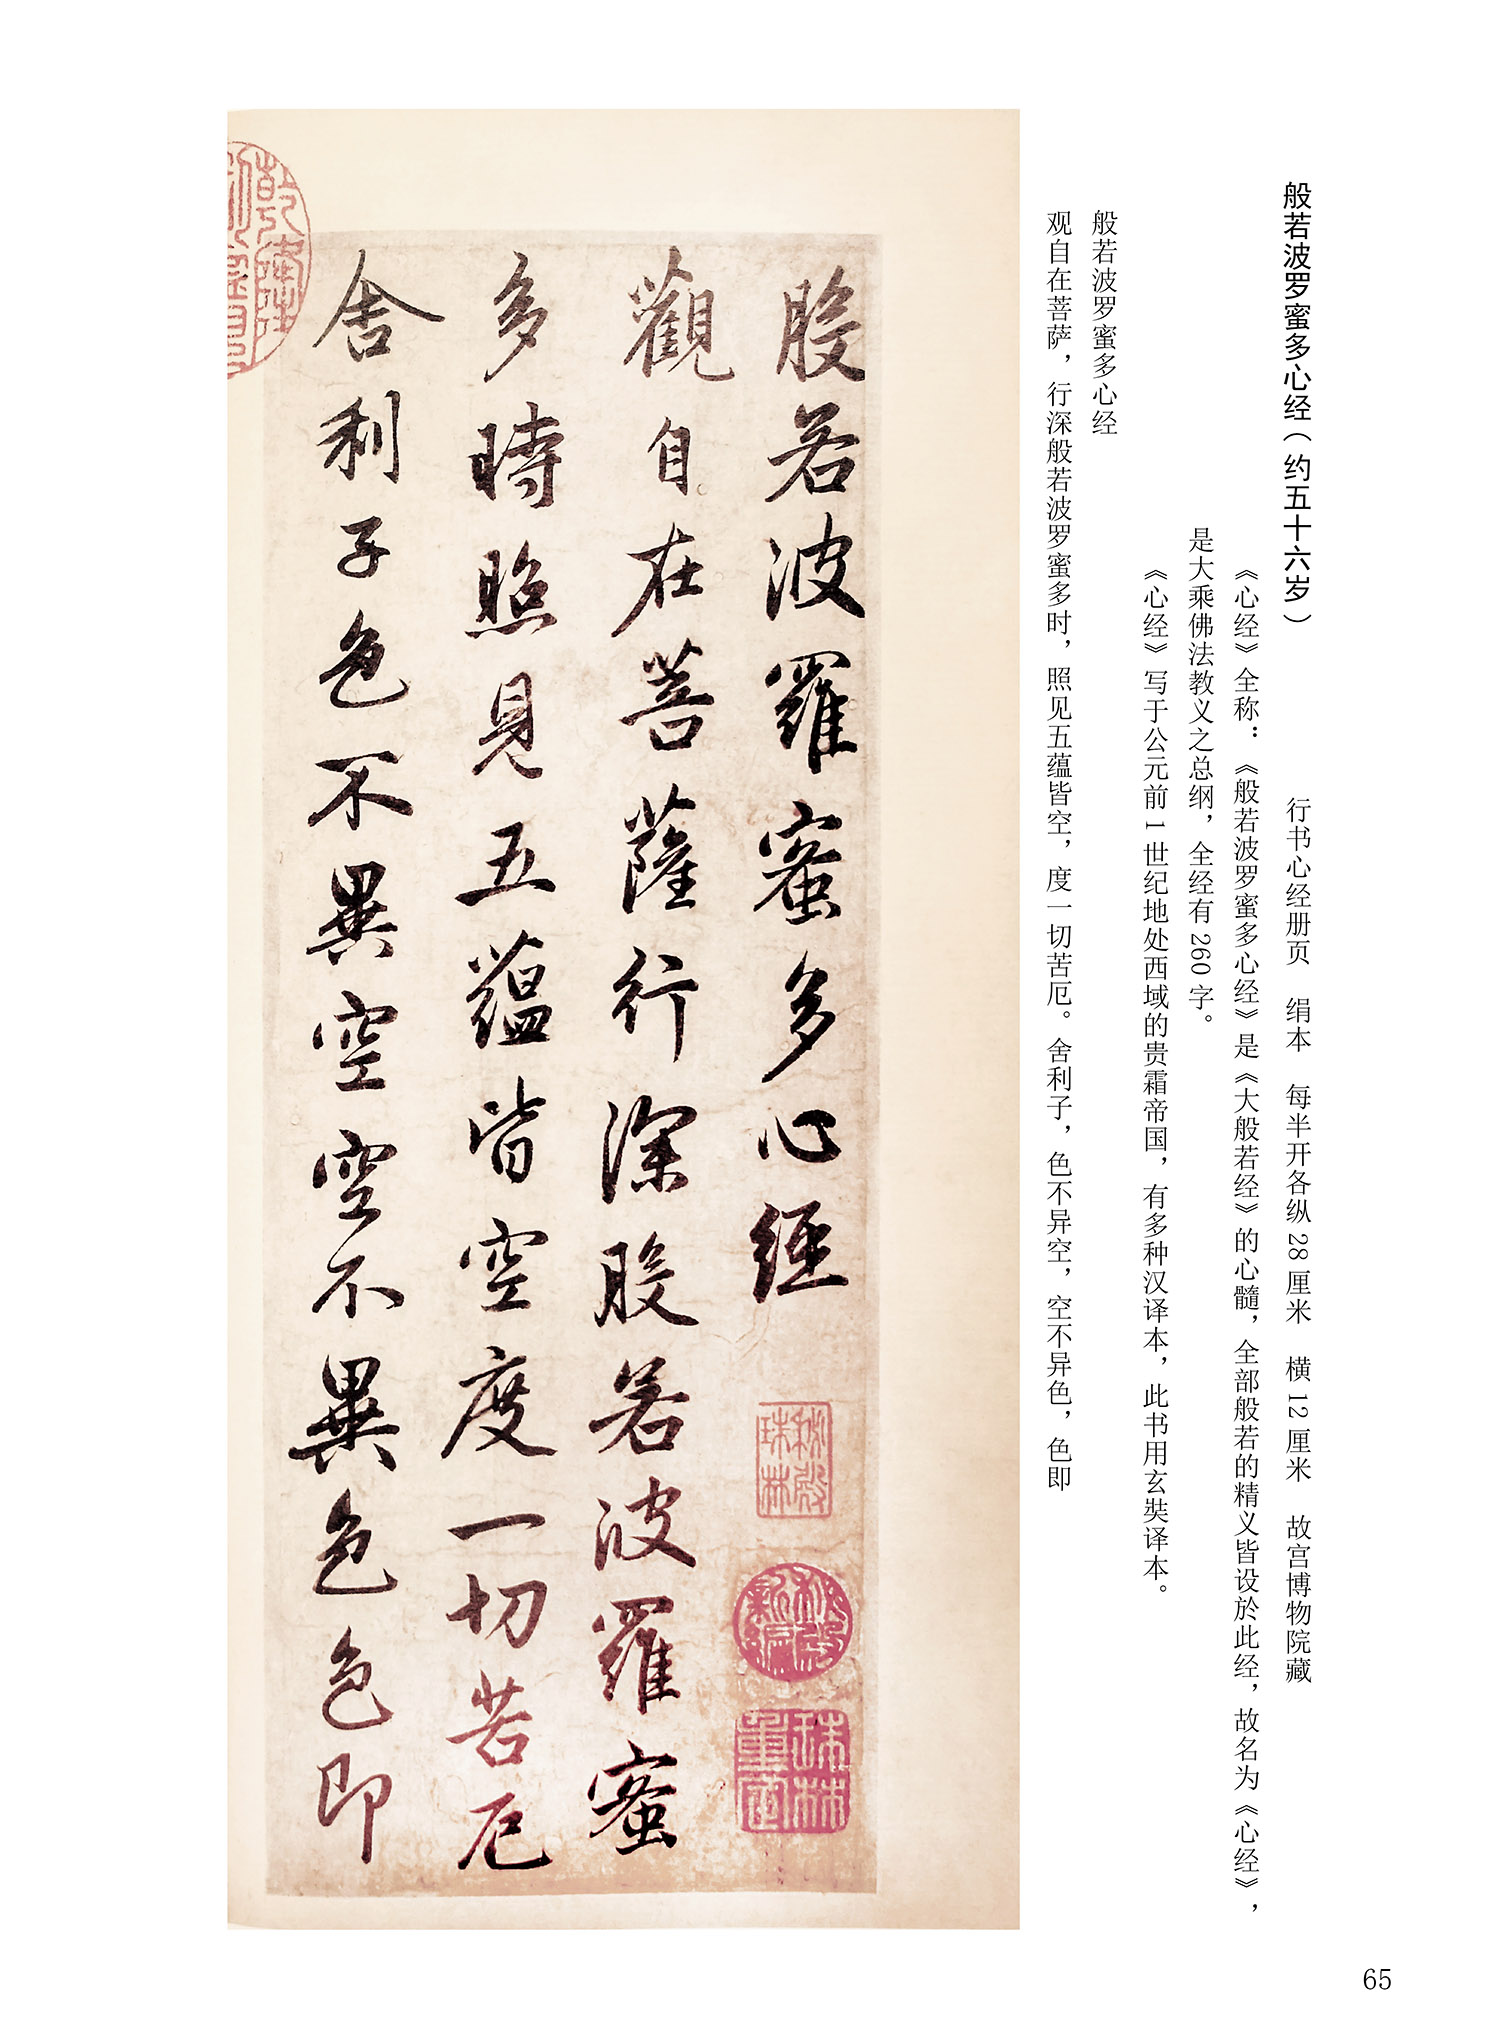 般若波罗蜜多心经（约五十六岁）
行书心经册页　绢本　每半开各纵 28 厘米　横 12 厘米　故宫博物院藏
《心经》全称：《般若波罗蜜多心经》是《大般若经》的心髓，全部般若的精义皆设於此经，故名为《心经》，
是大乘佛法教义之总纲，全经有 260 字。
《心经》写于公元前 1 世纪地处西域的贵霜帝国，有多种汉译本，此书用玄奘译本。
般若波罗蜜多心经
观自在菩萨，行深般若波罗蜜多时，照见五蕴皆空，度一切苦厄。舍利子，色不异空，空不异色，色即
般若波羅蜜多心經
觀自在菩薩行深般若波羅蜜
多時照見五蘊皆空度一切苦厄
舍利子色不異空空不異色色即
秘殿珠林
珠林重定
65